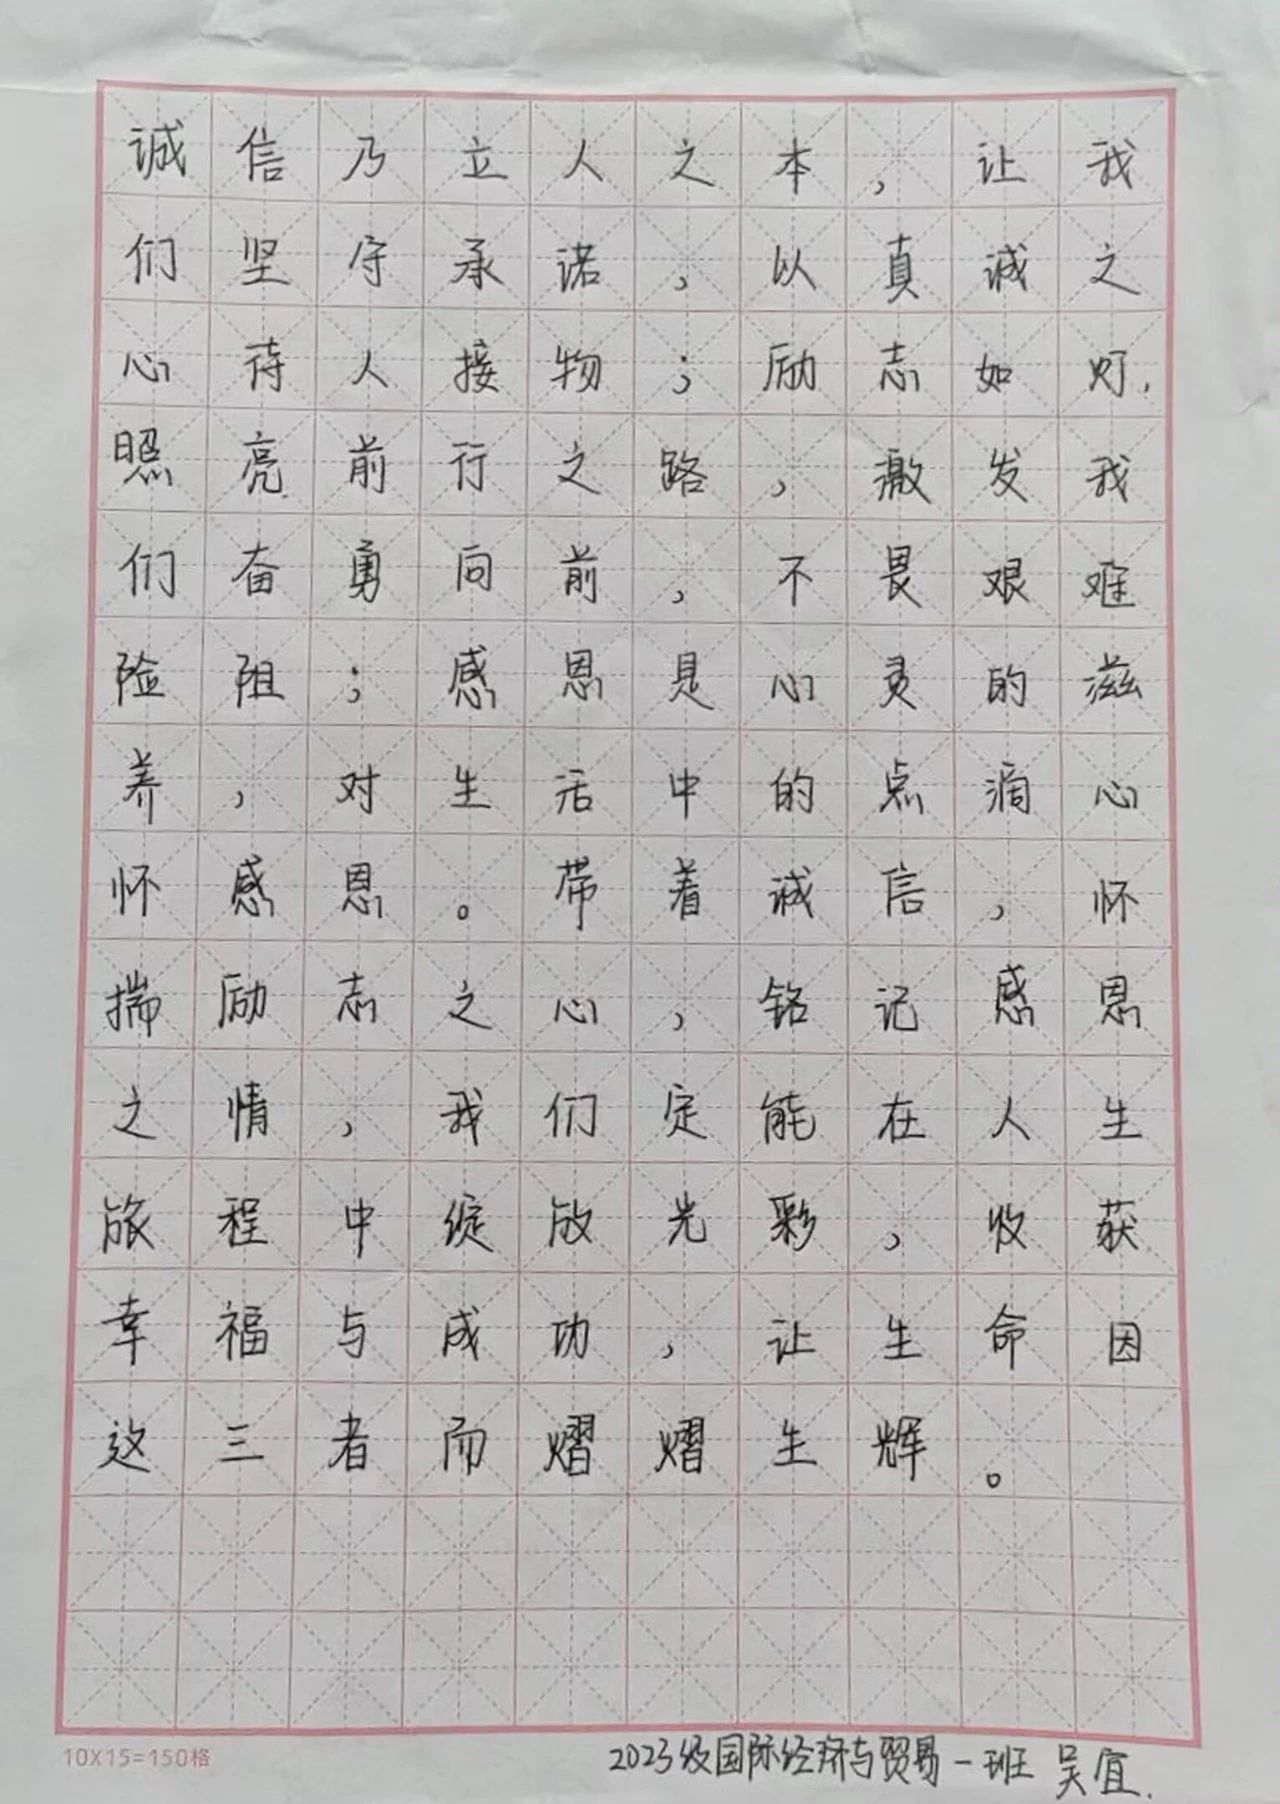 诚信乃立人之本，让我
们坚守承诺，以真诚之
心待人接物；励志如灯，
照亮前行之路，激发我
们奋勇向前，不畏艰难
险阻；感恩是心灵的滋
养，对生活中的点滴心
怀感恩。带着诚信，怀
揣励志之心，铭记感恩
之情，我们定能在人生
旅程中绽放光彩，收获
幸福与成功，让生命因
这三者而熠熠生辉。
10X15=150格
2023级国际经济与贸易一班 吴宜.